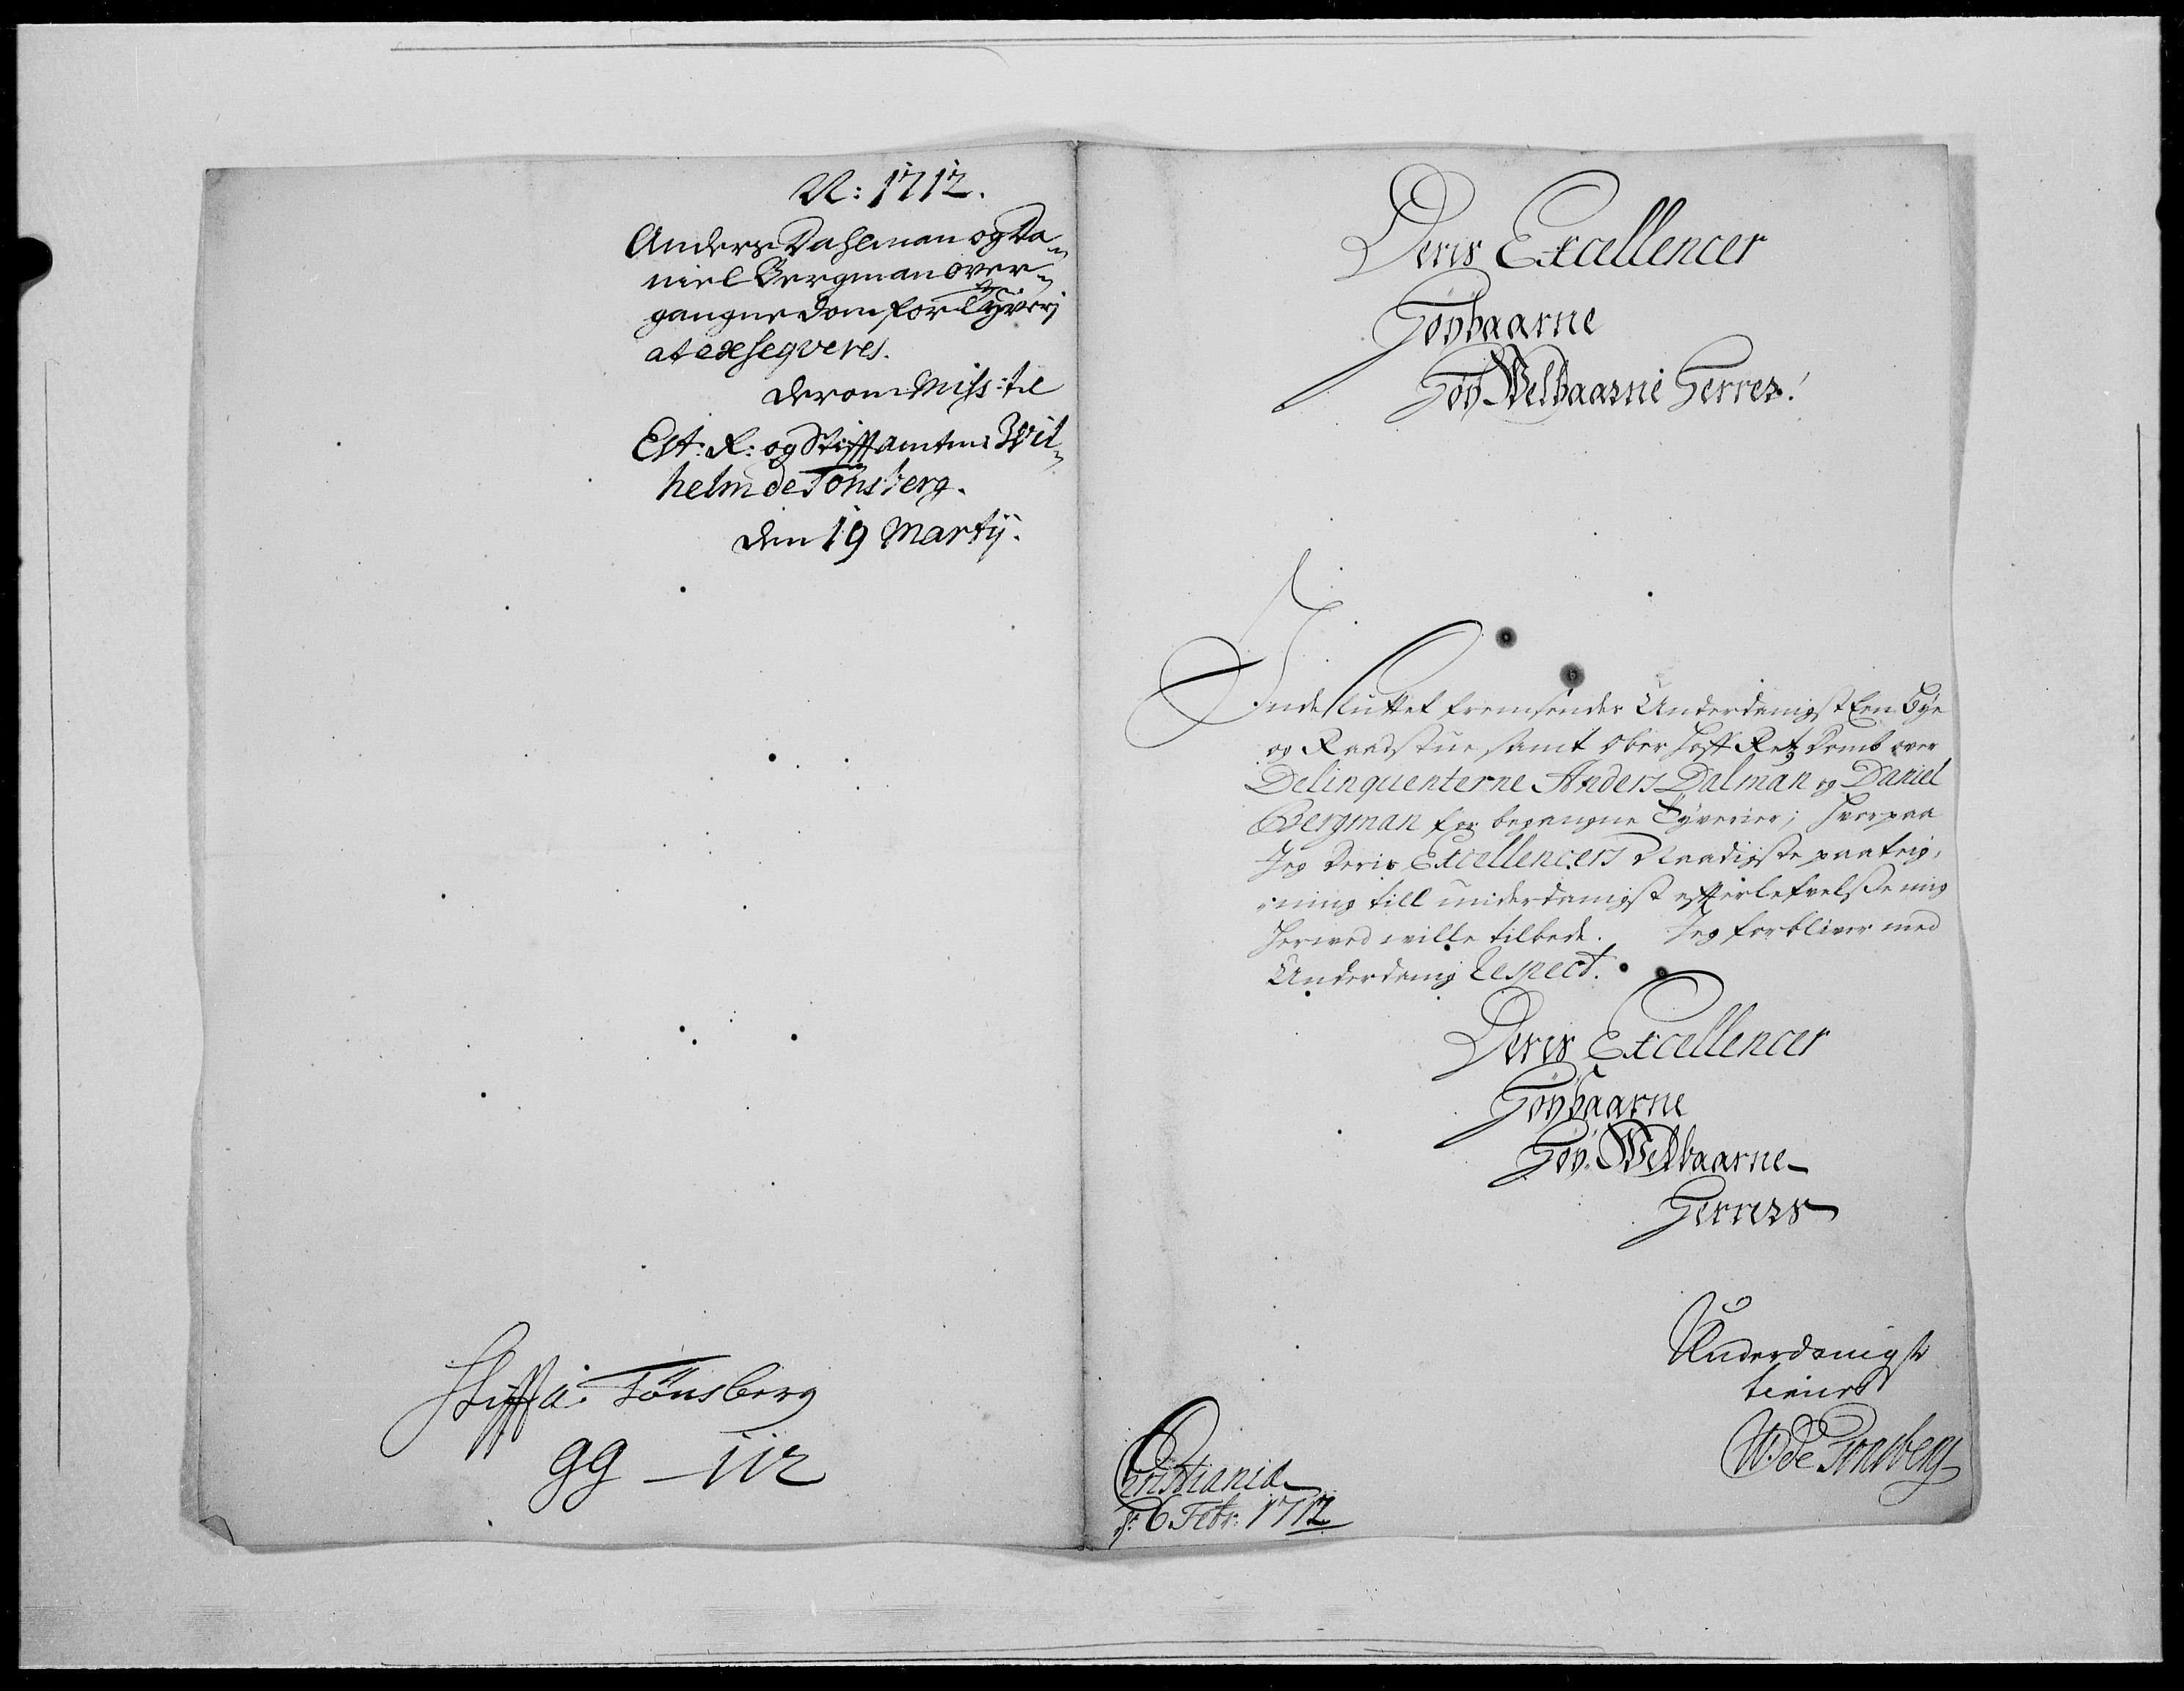 N: 1712.
Anders Dahlman og Da-
niel Bergman over-
gangne Dom for Tyverj
at exseqveres.
derom Miss: til
Est: R: og Stiffamtm: Wil-
helm de Tønsberg.
den 19 Martij.
Stiffa: Tønsberg
99 - 112
Deris Excellencer
Høybaarne
Høy Welbaarne Herrer!
Indesluttet fremsendes Underdanigst Een Bye
og Raadstue samt Ober Hoff Retz Domb over
Delinquenterne Anders Dalman og Daniel
Bergman for begangne Tyverier; hvorpaa
Jeg Deris Excellencers Naadigste paateig-
ning till underdanigst efterlefvelsse mig
herved wille tilbede. Jeg forbliver med
Underdanig Respect.
Deris Excellencer
Høybaarne
Høy Welbaarne
Herrers
Underdanigste
tienere
W de Tonsberg
Christiania
d: 6 Febr: 1712